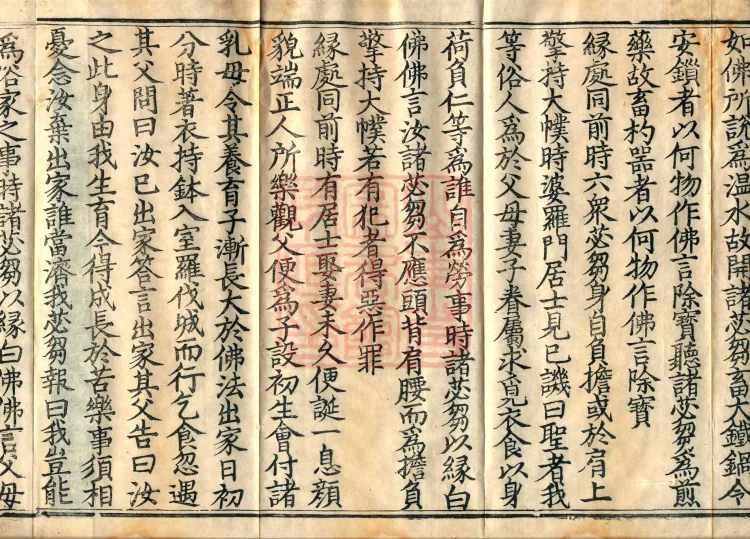 如佛所說為温水故開諸苾芻畜大鐵鍋令
安鎖者以何物作佛言除寶聽諸苾芻為煎
藥故畜杓器者以何物作佛言除寶
緣處同前時六衆苾芻身自負擔或於肩上
擎持大幞時婆羅門居士見已譏曰聖者我
等俗人為於父母妻子眷屬求覓衣食以身
荷負仁等為誰自為勞事時諸苾芻以緣白
佛佛言汝諸苾芻不應頭背肩腰而為擔負
擎持大幞若有犯者得惡作罪
緣處同前時有居士娶妻未久便誕一息顔
貌端正人所樂觀父便為子設初生會付諸
乳母令其養育子漸長大於佛法出家日初
分時著衣持鉢入室羅伐城而行乞食忽遇
其父問曰汝已出家答言出家其父告曰汝
之此身由我生育令得成長於苦樂事須相
憂念汝棄出家誰當濟我苾芻報曰我豈能
為俗家之事時諸苾芻以緣白佛佛言父母